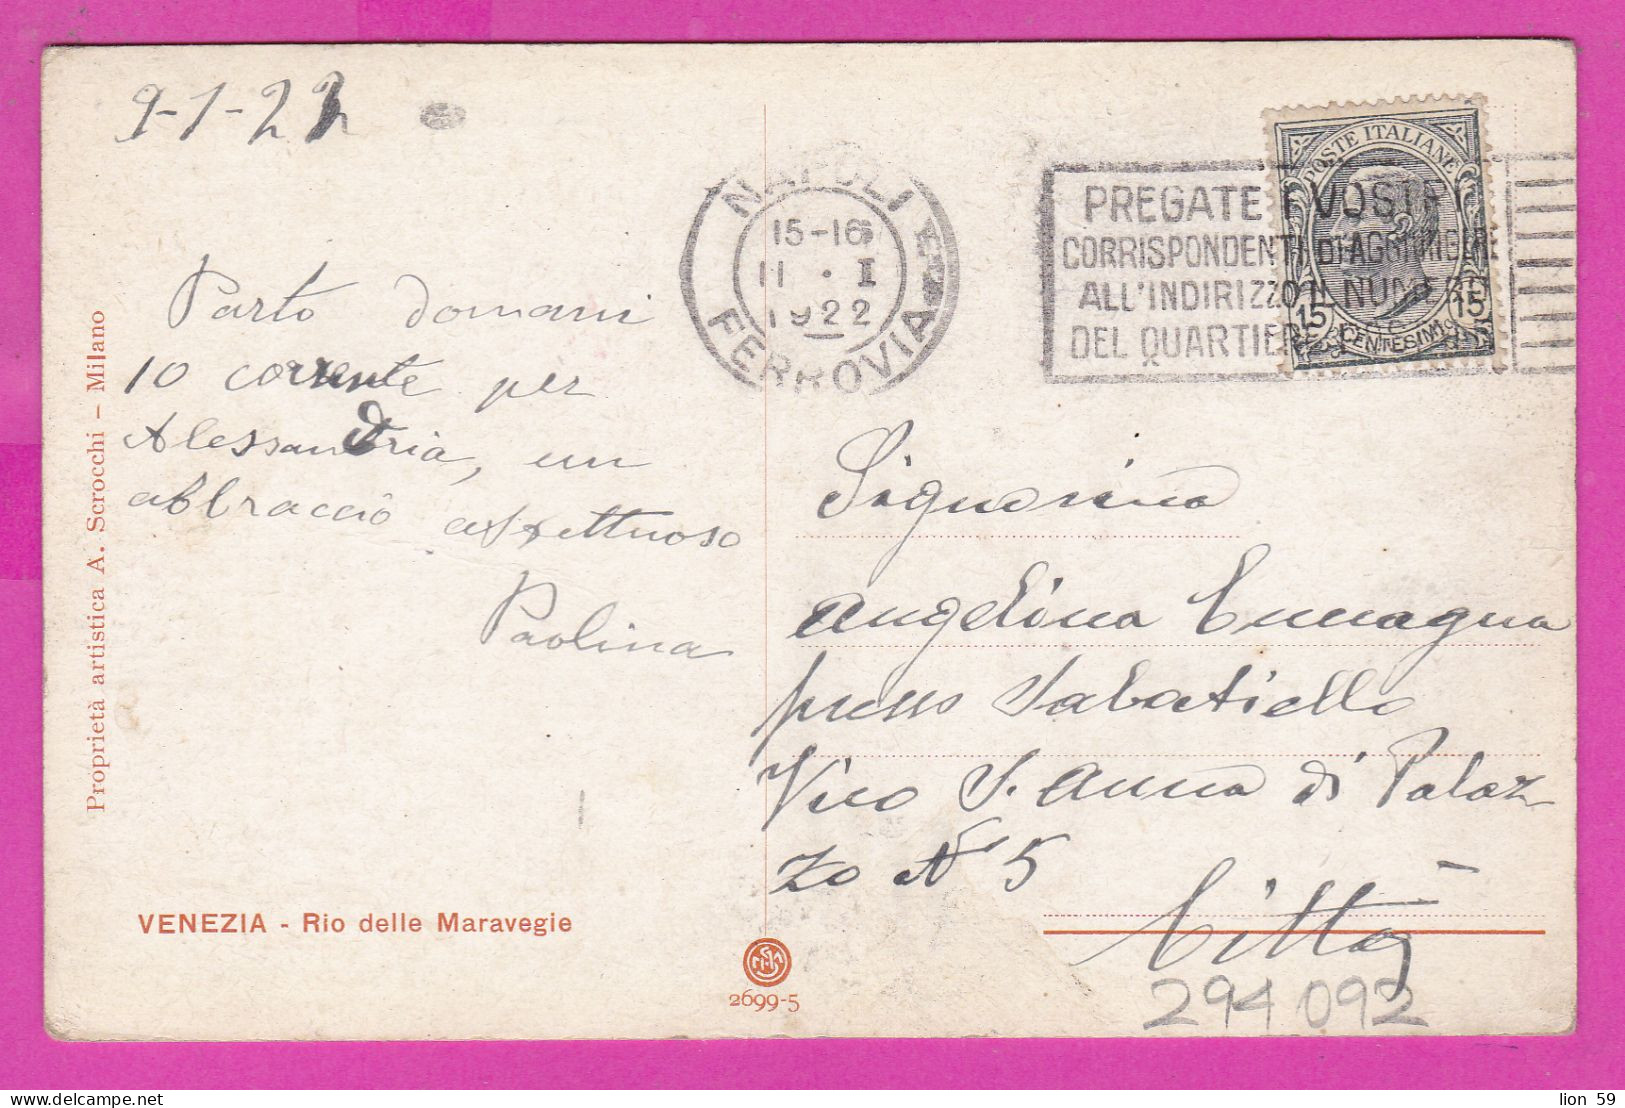 9-1-22
NAPOLI
15-16
11 . I
1922
FERROVIA
PREGATE I VOSTRI
CORRISPONDENTI DI AGGIUNGERE
ALL'INDIRIZZO IL NUMERO
DEL QUARTIERE
POSTE ITALIANE
15 CENTESIMI 15
Parto domani
10 corrente per
Alessandria, un
abbraccio affettuoso
Paolina
Signorina
Angelina
presso Sabatiello
Vico S. Anna di Palaz
zo No 5
Città
Proprietà artistica A. Scrocchi – Milano
VENEZIA - Rio delle Maravegie
2699-5
294 092
lion 59